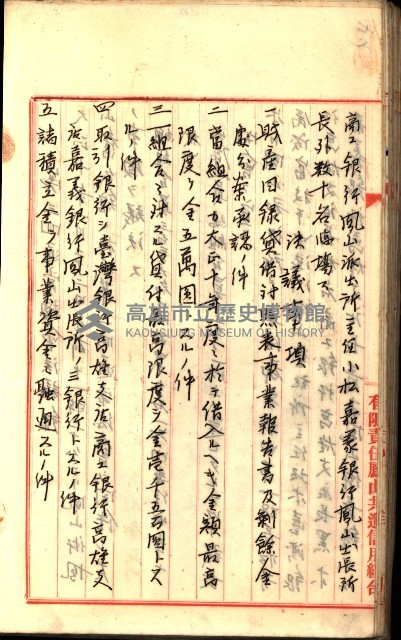 商工銀行鳳山派出所主任小松嘉義銀行鳳山出張所
長外数十名臨場ス
決議事項
一 財産目録貸借対照表事業報告書及剰余金
処分案承認ノ件
二 當組合カ大正十年度ニ於テ借入ルヘキ金額最高
限度ヲ金五萬圓トスルノ件
三 一組合ニ対スル貸付最高限度ヲ金壱千五百圓トス
ルノ件
四 取引銀行ヲ臺灣銀行高雄支店商工銀行高雄支
店嘉義銀行鳳山出張所ノ三銀行トスルノ件
五 諸積立金ヲ事業資金ニ融通スルノ件
有限責任鳳山共進信用組合
高雄市立歷史博物館
KAOHSIUNG MUSEUM OF HISTORY